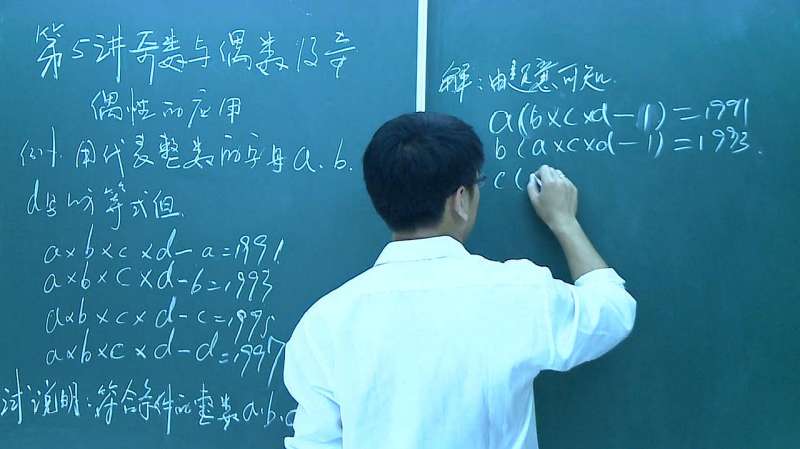 第5讲奇数与偶数及奇
偶性的应用
例1.用代表整数的字母a.b.
d写的等式组
a×b×c×d-a=1991
a×b×c×d-b=1993
a×b×c×d-c=1995
a×b×c×d-d=1997
试说明:符合条件的整数a.b.c
解:由题意可知.
a(b×c×d-1)=1991
b(a×c×d-1)=1993.
c(